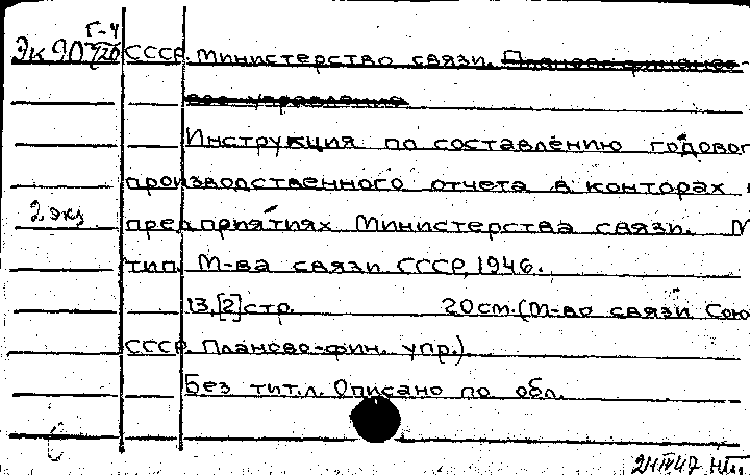 Г-4
Эк 90/720 СССР. Министерство связи. Планово-финансо-
вое управление
Инструкция по составлению годовог
производственного отчета в конторах
2 экз предприятиях Министерства связи. М
тип. М-ва связи СССР, 1946.
13,[2]стр. 20см.(М-во связи Сою
СССР. Планово-фин. упр.).
Без тит.л. Описано по обл.